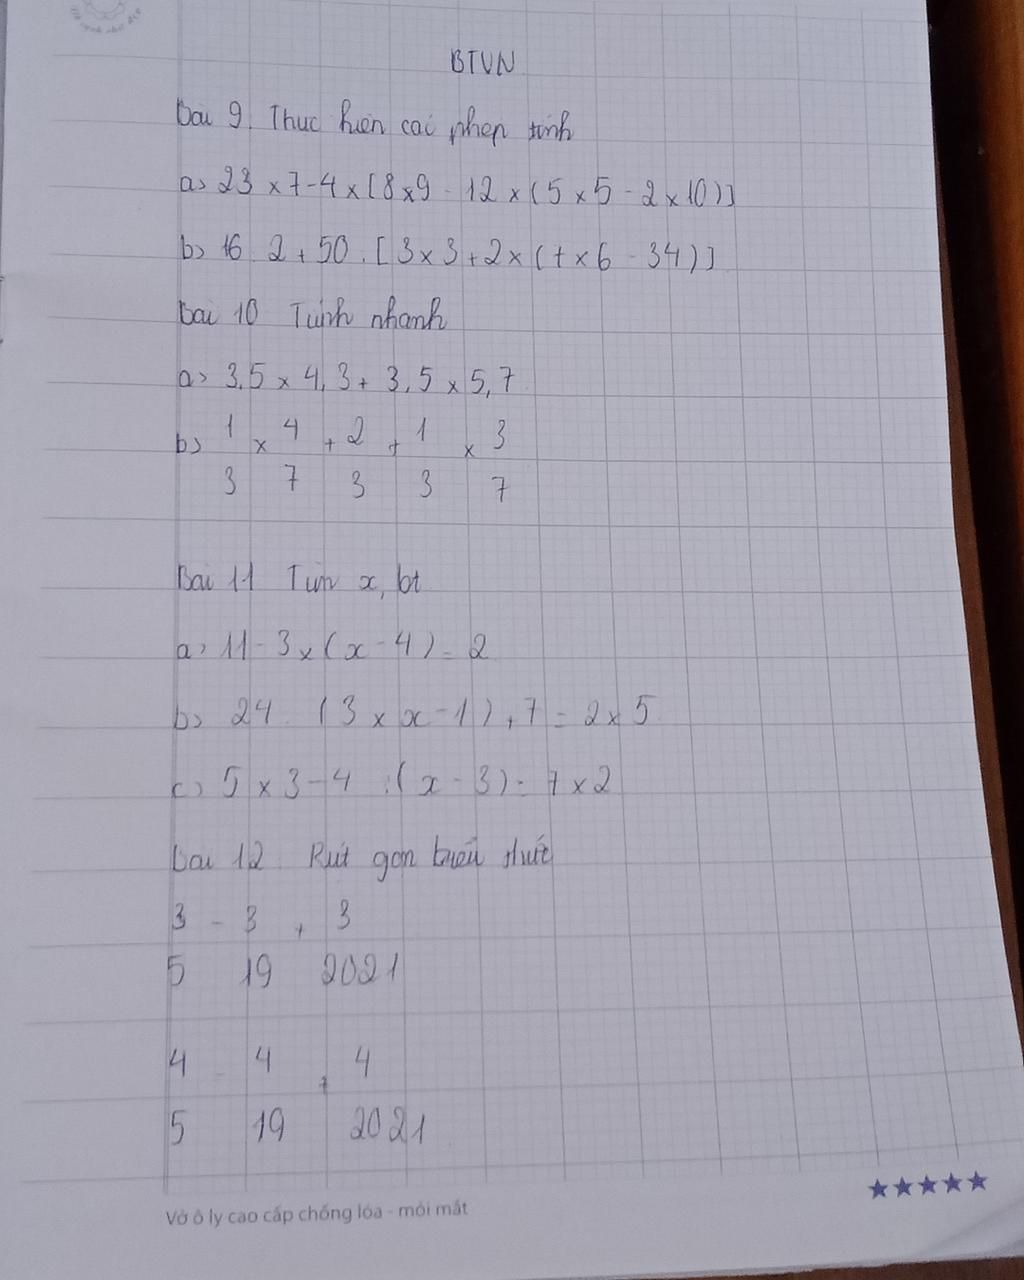 BTVN
Bài 9. Thực hiện các phép tính
a> 23 x 7 - 4 x [8 x 9 - 12 x (5 x 5 - 2 x 10)]
b> 16 : 2 + 50 : [3 x 3 + 2 x (7 x 6 - 34)]
Bài 10 Tính nhanh
a> 3,5 x 4,3 + 3,5 x 5,7
b> 1 x 4 + 2 + 1 x 3
3 7 3 3 7
Bài 11 Tìm x, bt
a> 11 - 3 x (x - 4) = 2
b> 24 : (3 x x - 1) + 7 = 2 x 5
c> 5 x 3 - 4 : (x - 3) = 7 x 2
Bài 12 Rút gọn biểu thức
3 - 3 + 3
5 19 2021
4 - 4 + 4
5 19 2021
Vở ô ly cao cấp chống lóa - mỏi mắt